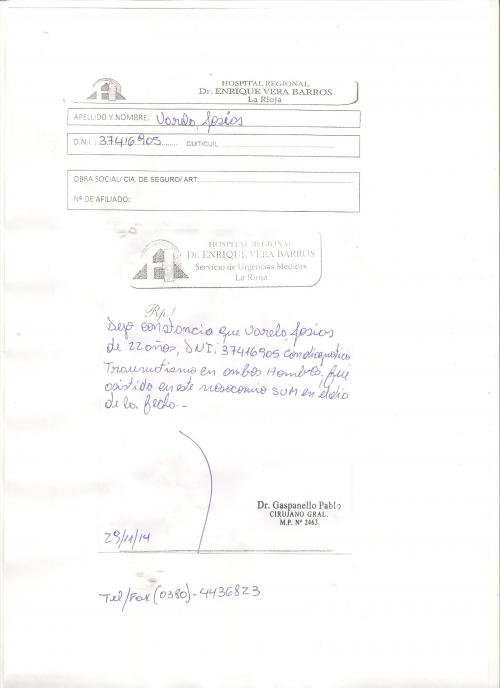 HOSPITAL REGIONAL
Dr. ENRIQUE VERA BARROS
La Rioja
APELLIDO Y NOMBRE: Varela, Josías
D.N.I.: 37416905 CUIT/CUIL:
OBRA SOCIAL/ CIA. DE SEGURO/ ART:
Nº DE AFILIADO:
HOSPITAL REGIONAL
Dr. ENRIQUE VERA BARROS
Servicio de Urgencias Medicas
La Rioja
Rp.!
Dejo constancia que Varela, Josías
de 22 años, DNI: 37416905 con diagnostico
Traumatismo en ambos Hombros, fué
asistido en este nosocomio SUM en el día
de la fecha.-
Dr. Gaspanello Pablo
CIRUJANO GRAL.
M.P. Nº 2463
29/11/14
Tel/Fax (0380)-4436823